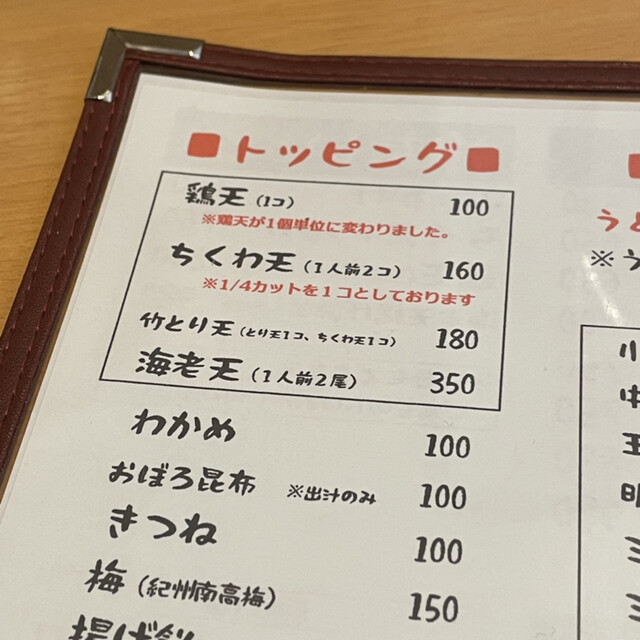 ■トッピング■
鶏天（1コ） 100
※鶏天が1個単位に変わりました。
ちくわ天（1人前2コ） 160
※1/4カットを1コとしております
竹とり天（とり天1コ、ちくわ天1コ） 180
海老天（1人前2尾） 350
わかめ 100
おぼろ昆布 ※出汁のみ 100
きつね 100
梅（紀州南高梅） 150
揚げ餅
■
う
※う
小
中
玉
明
ミ
ミ